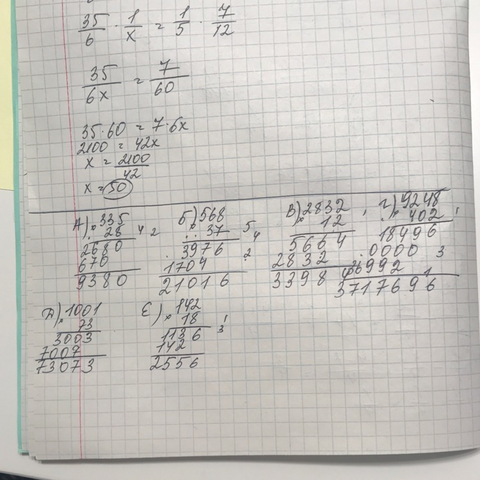 35/6 · 1/x = 1/5 · 7/12
35/6x = 7/60
35·60 = 7·6x
2100 = 42x
x = 2100/42
x = 50
А) 335
28 4 2
2680
670
9380
Б) 568
37 5 4
3976 2
1704
21016
В) 2832
12 1
5664
2832
33984
Г) 9248
402 1
18496
0000 3
36992 1
3717696
Д) 1001
73
3003
7007
73073
Е) 142
18
1136 3 1
142
2556